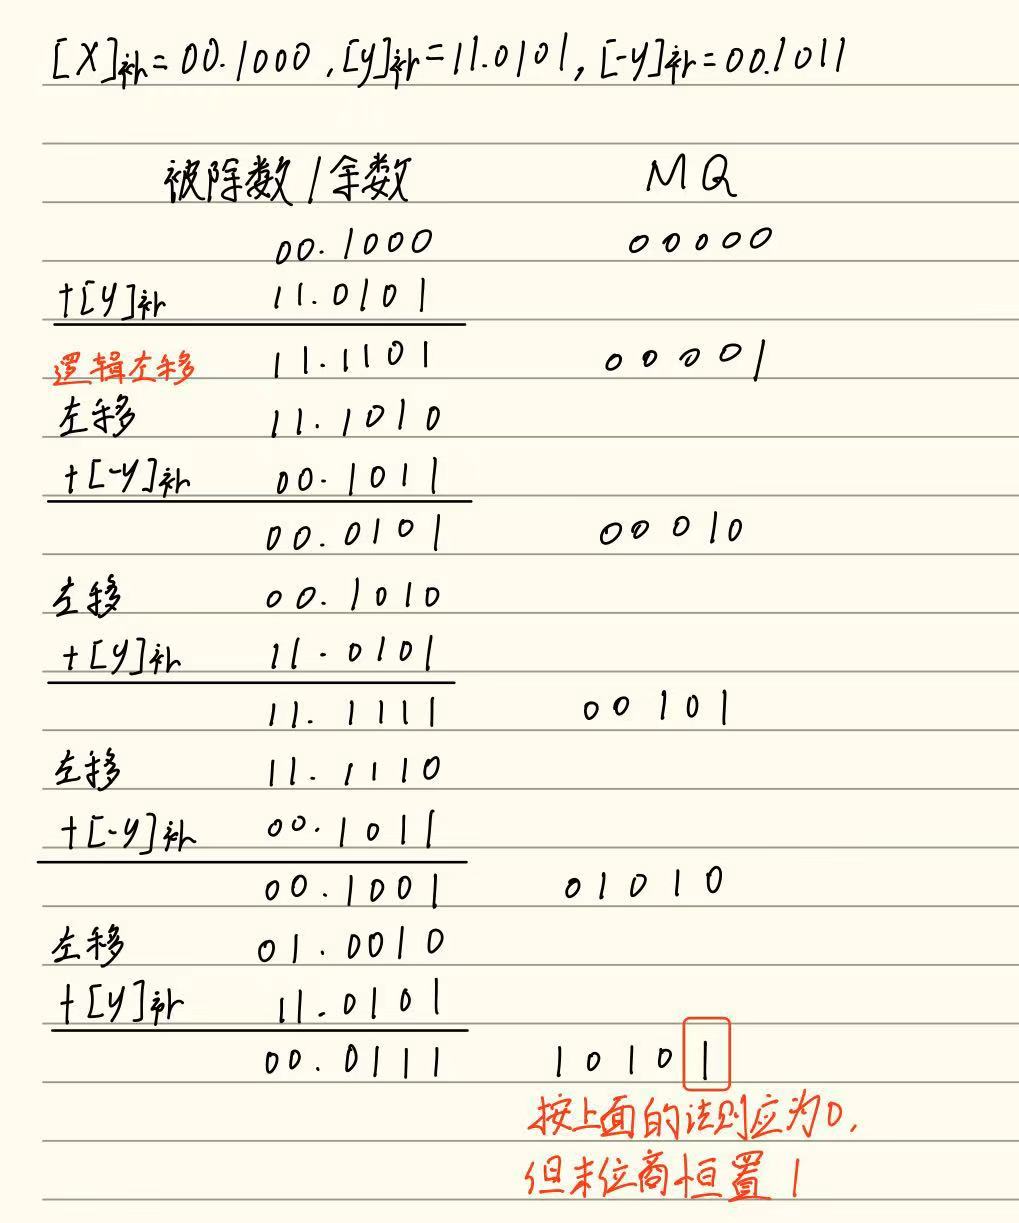 [X]补=00.1000,[y]补=11.0101,[-y]补=00.1011
被除数/余数 MQ
00.1000 00000
+[y]补 11.0101
逻辑左移 11.1101 00001
左移 11.1010
+[-y]补 00.1011
00.0101 00010
左移 00.1010
+[y]补 11.0101
11.1111 00101
左移 11.1110
+[-y]补 00.1011
00.1001 01010
左移 01.0010
+[y]补 11.0101
00.0111 10101
按上面的法则应为0,
但末位商恒置1